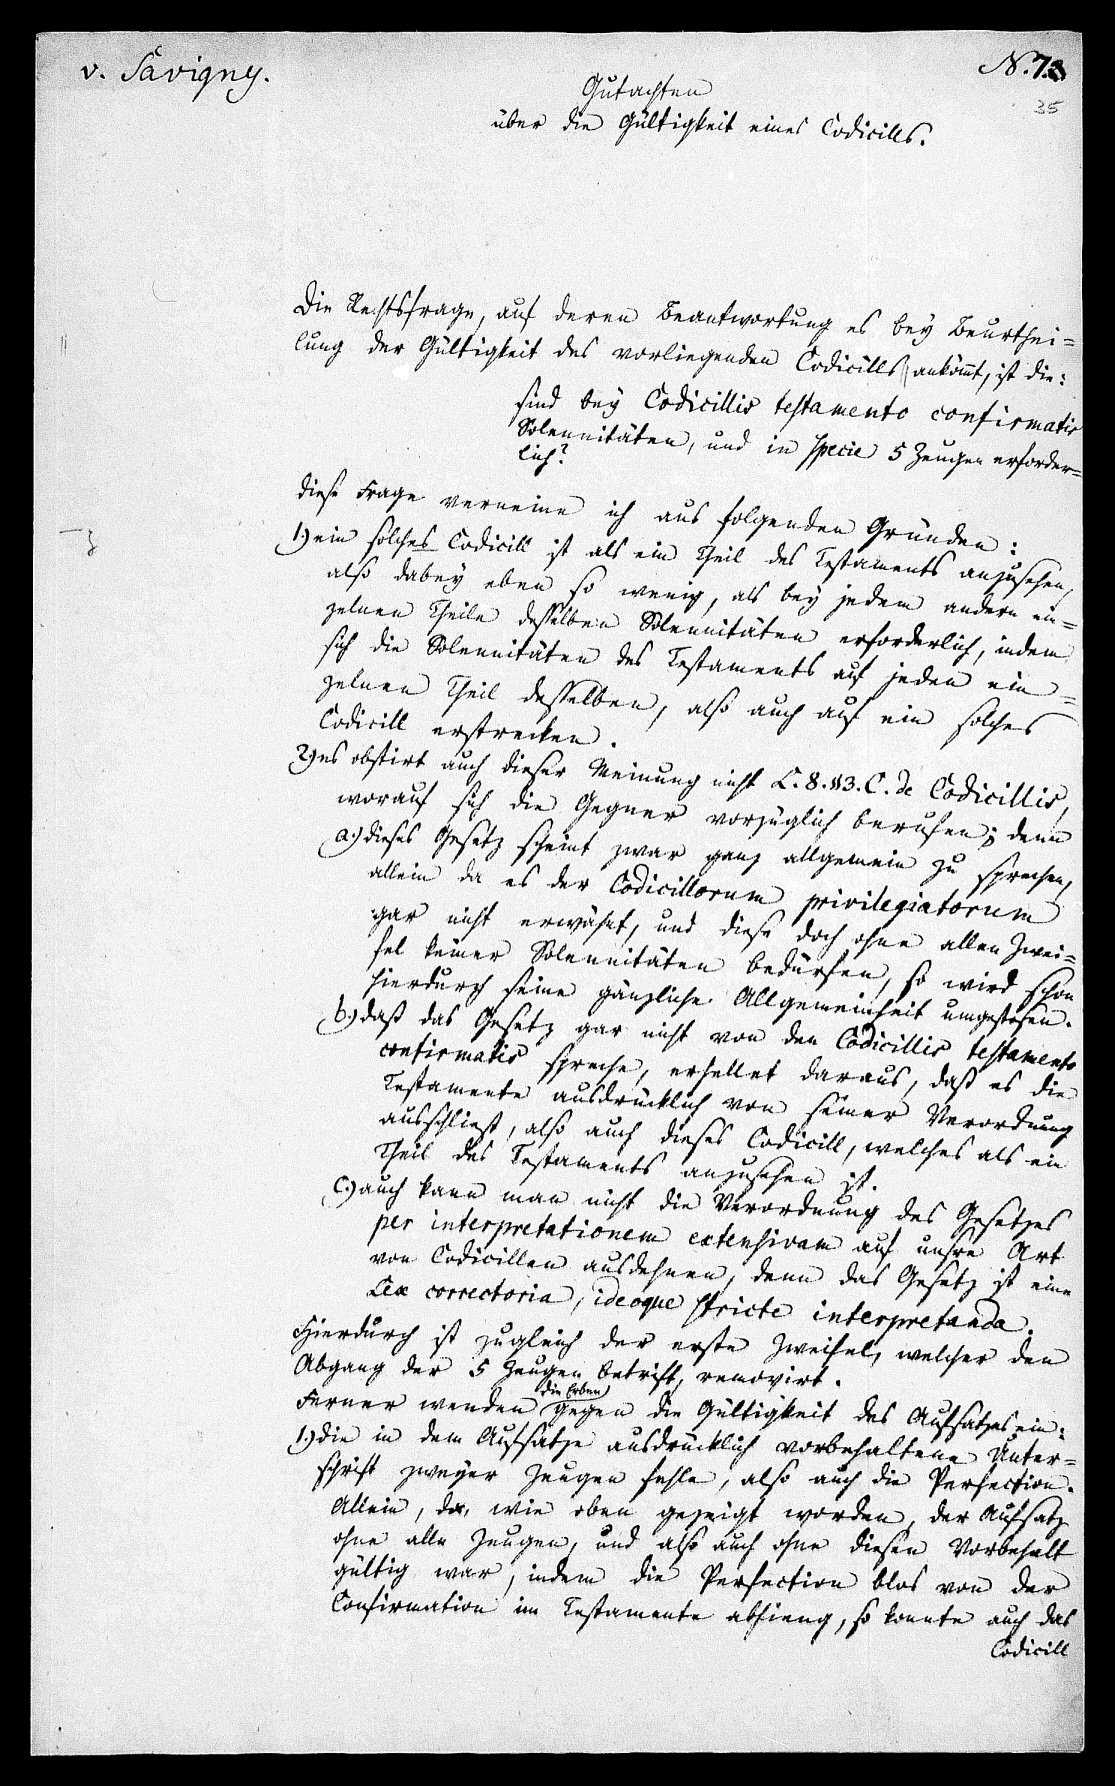 v. Savigny.
N. 7.
35
Gutachten
über die Gültigkeit eines Codicills.
Die Rechtsfrage, auf deren Beantwortung es bey Beurthei=
lung der Gültigkeit des vorliegenden Codicills ankömt, ist die:
sind bey Codicillis testamento confirmatis
Solennitäten, und in specie 5 Zeugen erforder=
lich?
diese Frage verneine ich aus folgenden Gründen:
1.) ein solches Codicill ist als ein Theil des Testaments anzusehen,
also dabey eben so wenig, als bey jedem andern ein=
zelnen Theile desselben Solennitäten erforderlich, indem
sich die Solennitäten des Testaments auf jeden ein=
zelnen Theil desselben, also auch auf ein solches
Codicill erstrecken.
2.) es obstirt auch dieser Meinung nicht L. 8. §3. C. de Codicillis,
worauf sich die Gegner vorzüglich berufen; denn
a.) dieses Gesetz scheint zwar ganz allgemein zu sprechen,
allein da es der Codicillorum privilegiatorum
gar nicht erwähnt, und diese doch ohne allen Zwei=
fel keiner Solennitäten bedürfen, so wird schon
hierdurch seine gänzliche Allgemeinheit umgestosen.
b.) daß das Gesetz gar nicht von den Codicillis testamento
confirmatis spreche, erhellet daraus, daß es die
Testamente ausdrücklich von seiner Verordnung
ausschliest, also auch dieses Codicill, welches als ein
Theil des Testaments anzusehen ist.
c.) auch kann man nicht die Verordnung des Gesetzes
per interpretationem extensivam auf unsre Art
von Codicillen ausdehnen, denn das Gesetz ist eine
Lex correctoria, ideoque stricte interpretanda.
Hierdurch ist zugleich der erste Zweifel, welcher den
Abgang der 5 Zeugen betrift, removirt.
Ferner wenden die Erben gegen die Gültigkeit des Aufsatzes ein:
1.) die in dem Aufsatze ausdrücklich vorbehaltene Unter=
schrift zweyer Zeugen fehle, also auch die Perfection.
Allein, da, wie oben gezeigt worden, der Aufsatz
ohne alle Zeugen, und also auch ohne diesen Vorbehalt
gültig war, indem die Perfection blos von der
Confirmation im Testamente abhieng, so konnte auch das
Codicill